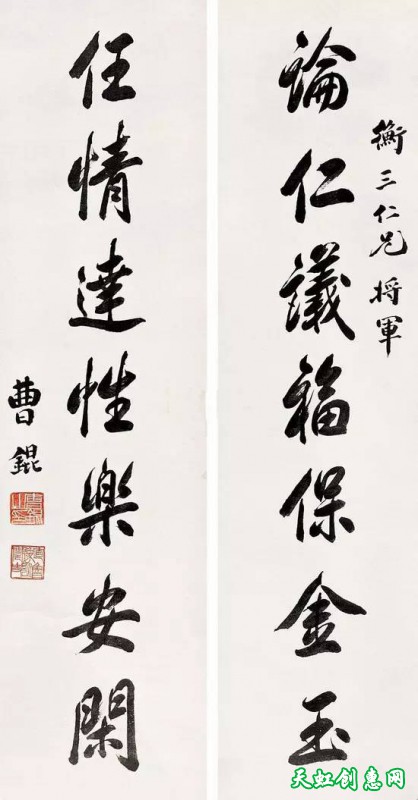 衡三仁兄将軍
論仁議福保金玉
任情達性樂安閑
曹錕
天虹创惠网